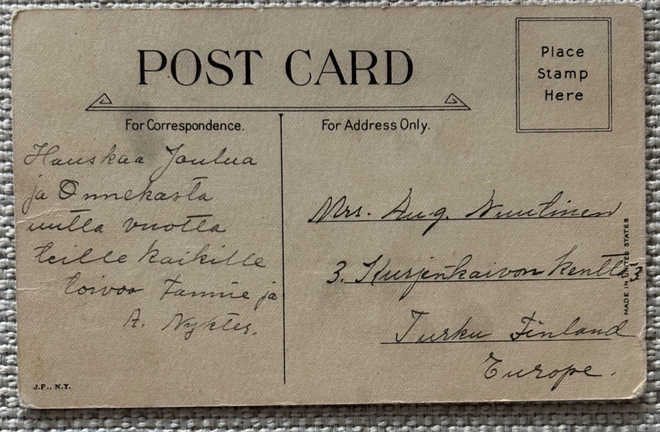 POST CARD
Place
Stamp
Here
For Correspondence.
For Address Only.
Hauskaa Joulua
ja Onnekasta
uutta vuotta
teille kaikille
toivoo Fannie ja
A. Nykter.
Mrs. Aug. Nuutinen
3. Kurjenkaivon kenttä 3
Turku Finland
Europe.
MADE IN UNITED STATES
J.P., N.Y.